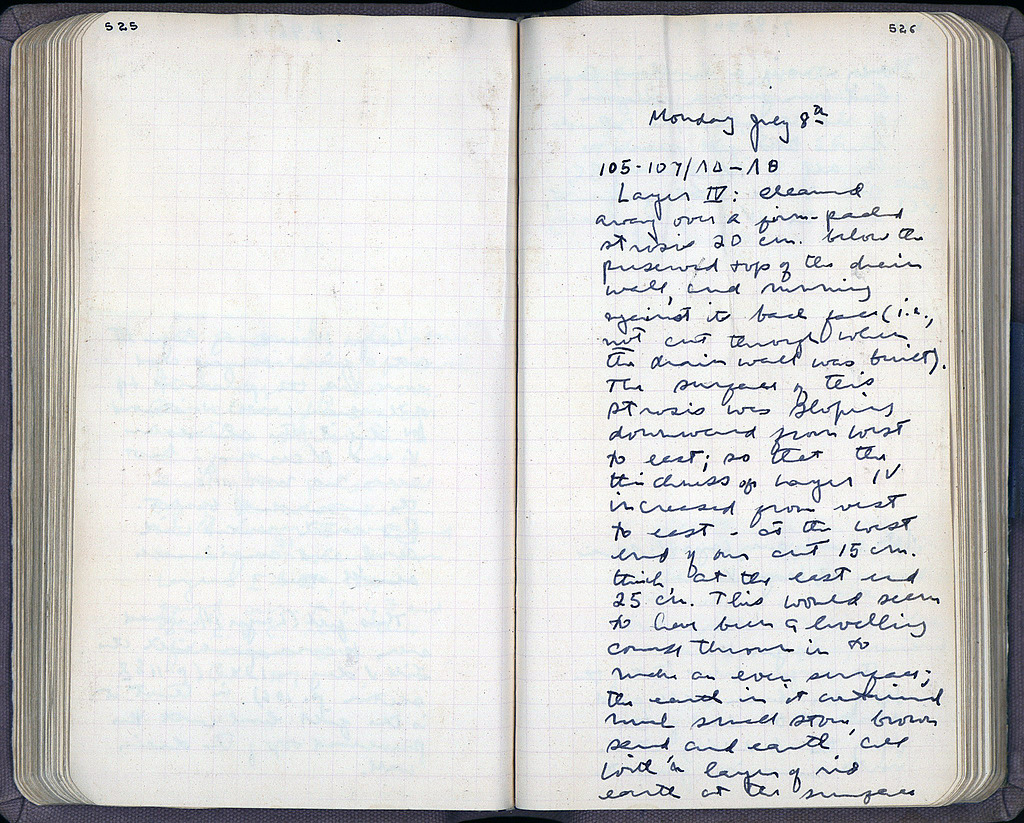 525
526
Monday July 8th
105-107/ΛΔ-ΛΘ
Layer IV: cleaned
away over a firm-packed
strosis 20 cm. below the
preserved top of the drain
wall, and running
against its back face (i.e.,
not cut through when
the drain wall was built).
The surface of this
strosis was sloping
downward from west
to east; so that the
thickness of Layer IV
increased from west
to east - at the west
end of our cut 15 cm.
thick, at the east end
25 cm. This would seem
to have been a levelling
course thrown in to
make an even surface;
the earth in it contained
much small stone, brown
sand and earth, all
with a layer of red
earth at the surface